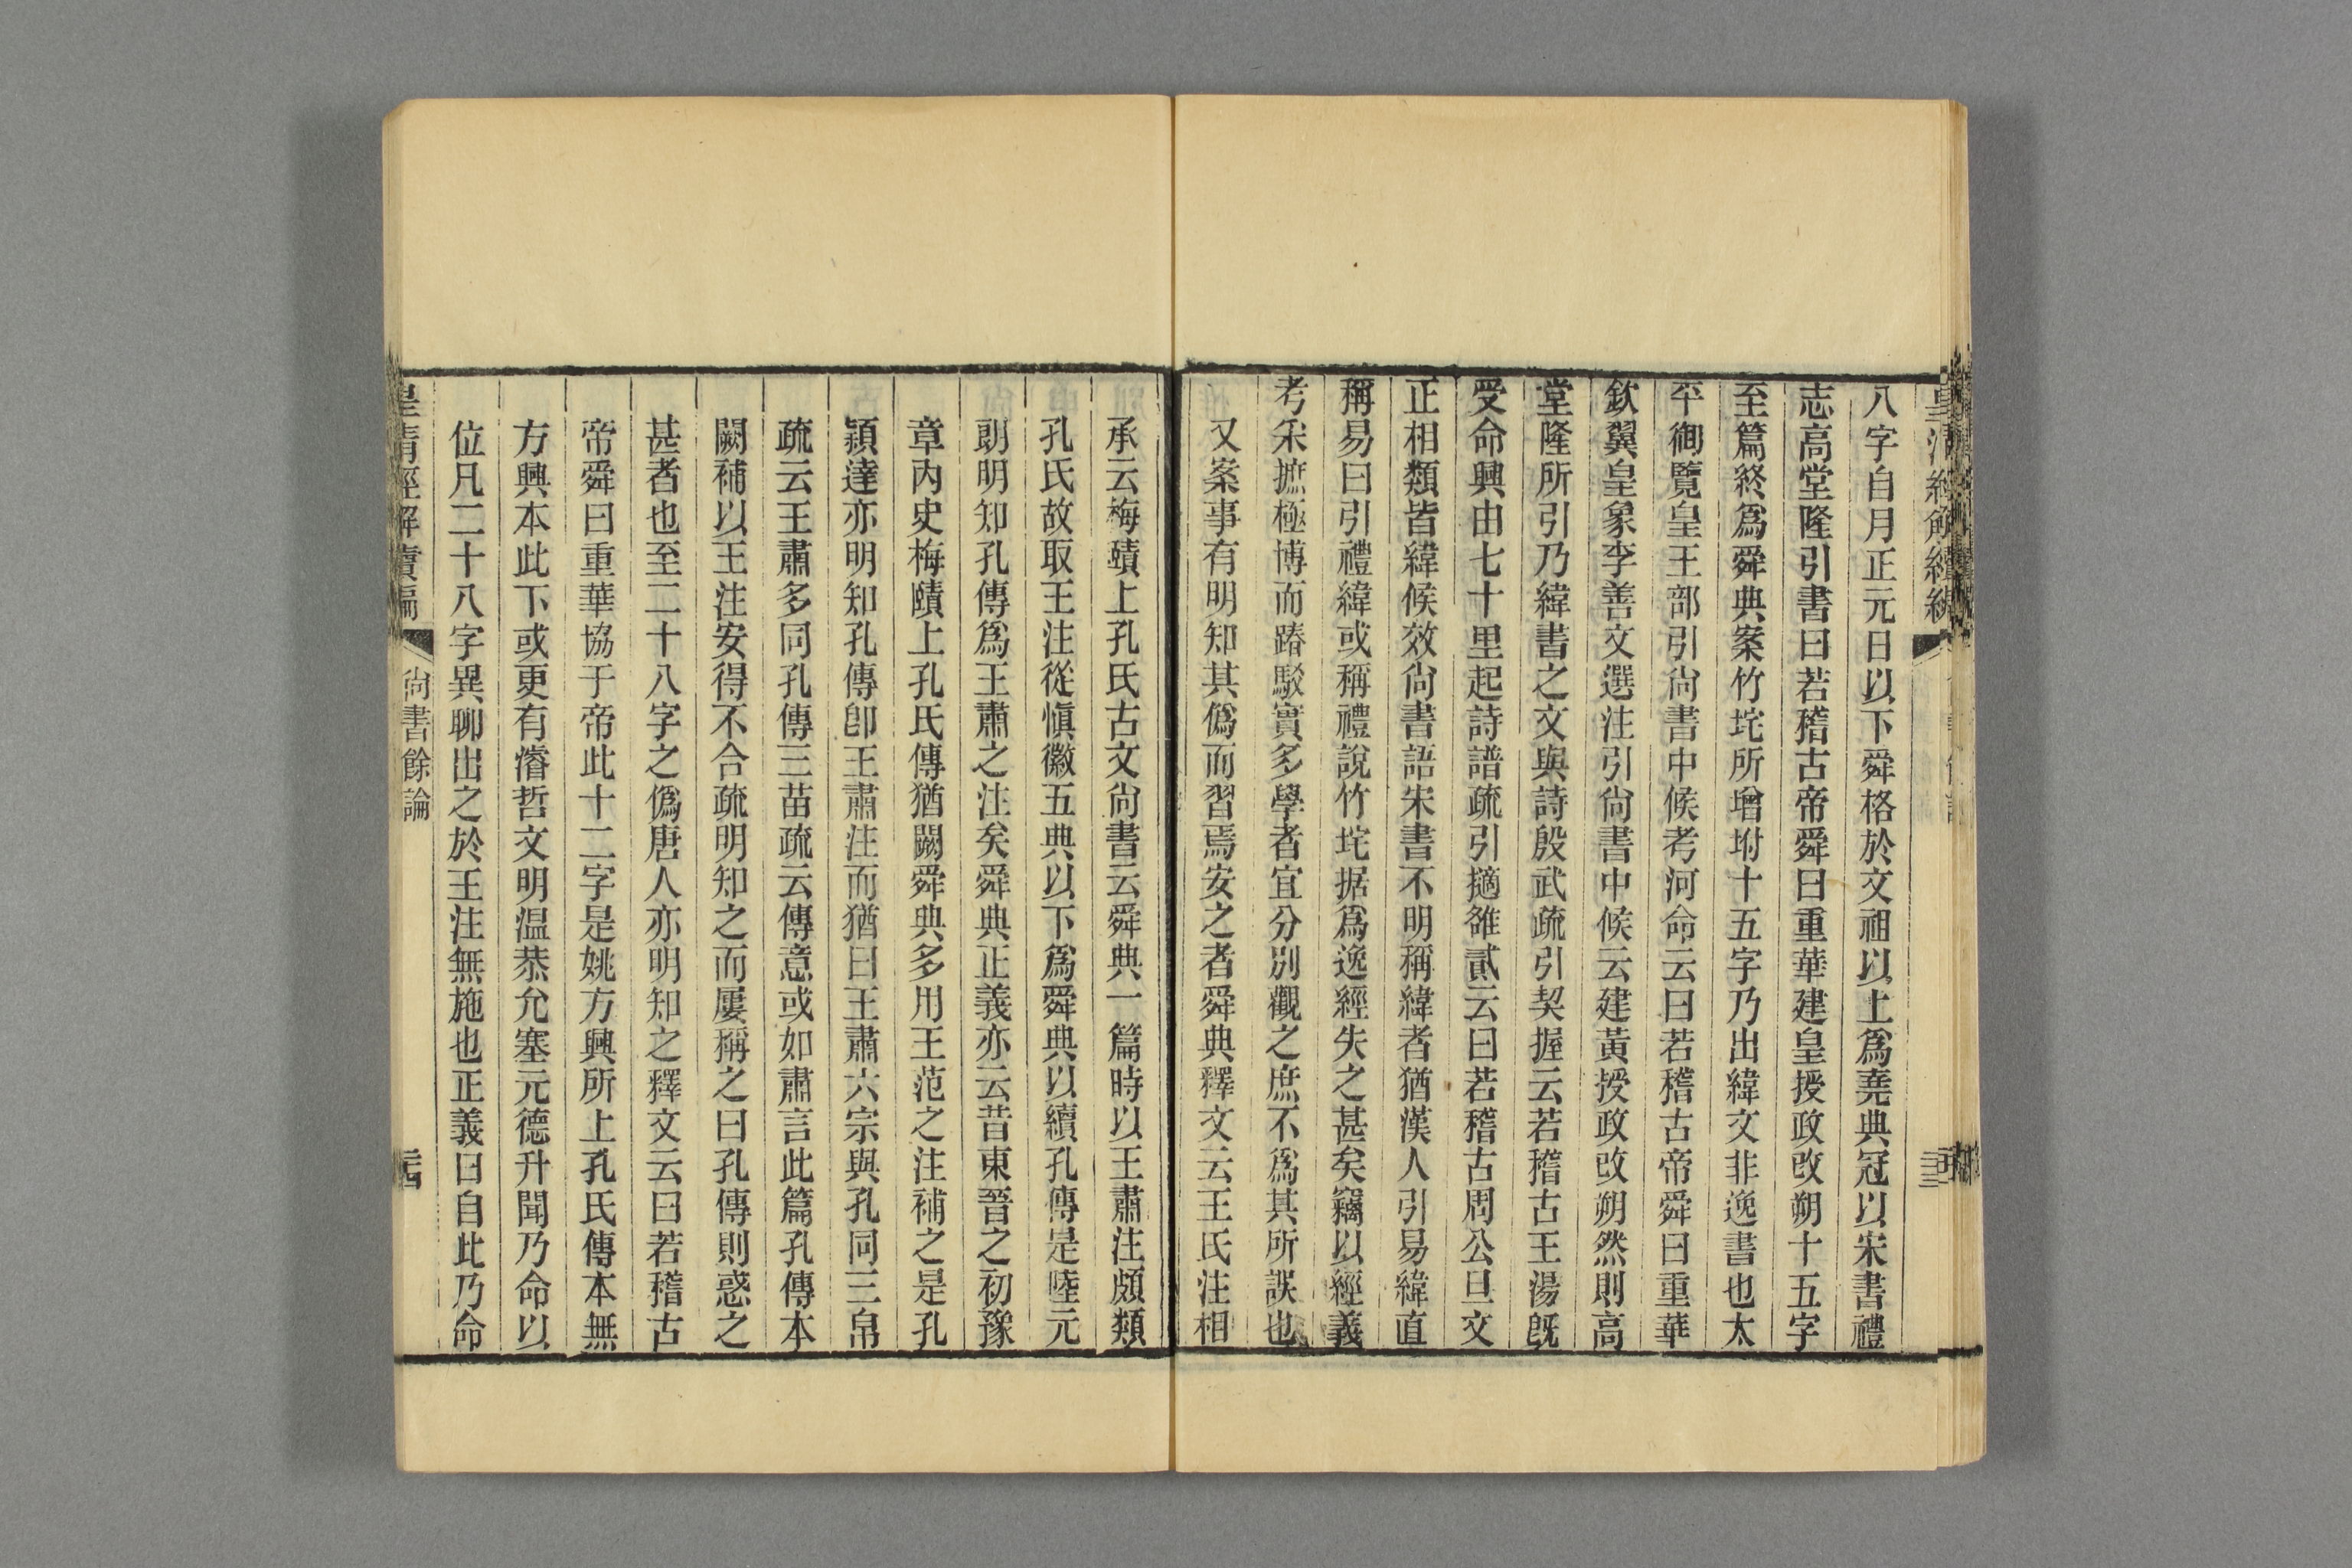 八字自月正元日以下舜格於文祖以上爲堯典冠以宋書禮
志高堂隆引書曰若稽古帝舜曰重華建皇授政改朔十五字
至篇終爲舜典案竹垞所增坿十五字乃出緯文非逸書也太
平御覽皇王部引尙書中候考河命云曰若稽古帝舜曰重華
欽翼皇象李善文選注引尙書中候云建黃授政改朔然則高
堂隆所引乃緯書之文與詩殷武疏引契握云若稽古王湯旣
受命興由七十里起詩譜疏引擿雒貳云曰若稽古周公旦文
正相類皆緯候效尙書語宋書不明稱緯者猶漢人引易緯直
稱易曰引禮緯或稱禮說竹垞据爲逸經失之甚矣竊以經義
考釆摭極博而踳駁實多學者宜分別觀之庶不爲其所誤也
又案事有明知其僞而習焉安之者舜典釋文云王氏注相
承云梅賾上孔氏古文尙書云舜典一篇時以王肅注頗類
孔氏故取王注從愼徽五典以下爲舜典以續孔傳是陸元
朗明知孔傳爲王肅之注矣舜典正義亦云昔東晉之初豫
章內史梅賾上孔氏傳猶闕舜典多用王范之注補之是孔
穎達亦明知孔傳卽王肅注而猶曰王肅六宗與孔同三帛
疏云王肅多同孔傳三苗疏云傳意或如肅言此篇孔傳本
闕補以王注安得不合疏明知之而屢稱之曰孔傳則惑之
甚者也至二十八字之僞唐人亦明知之釋文云曰若稽古
帝舜曰重華協于帝此十二字是姚方興所上孔氏傳本無
方興本此下或更有濬哲文明温恭允塞元德升聞乃命以
位凡二十八字異聊出之於王注無施也正義曰自此乃命
皇清經解續編 尙書餘論 二十四